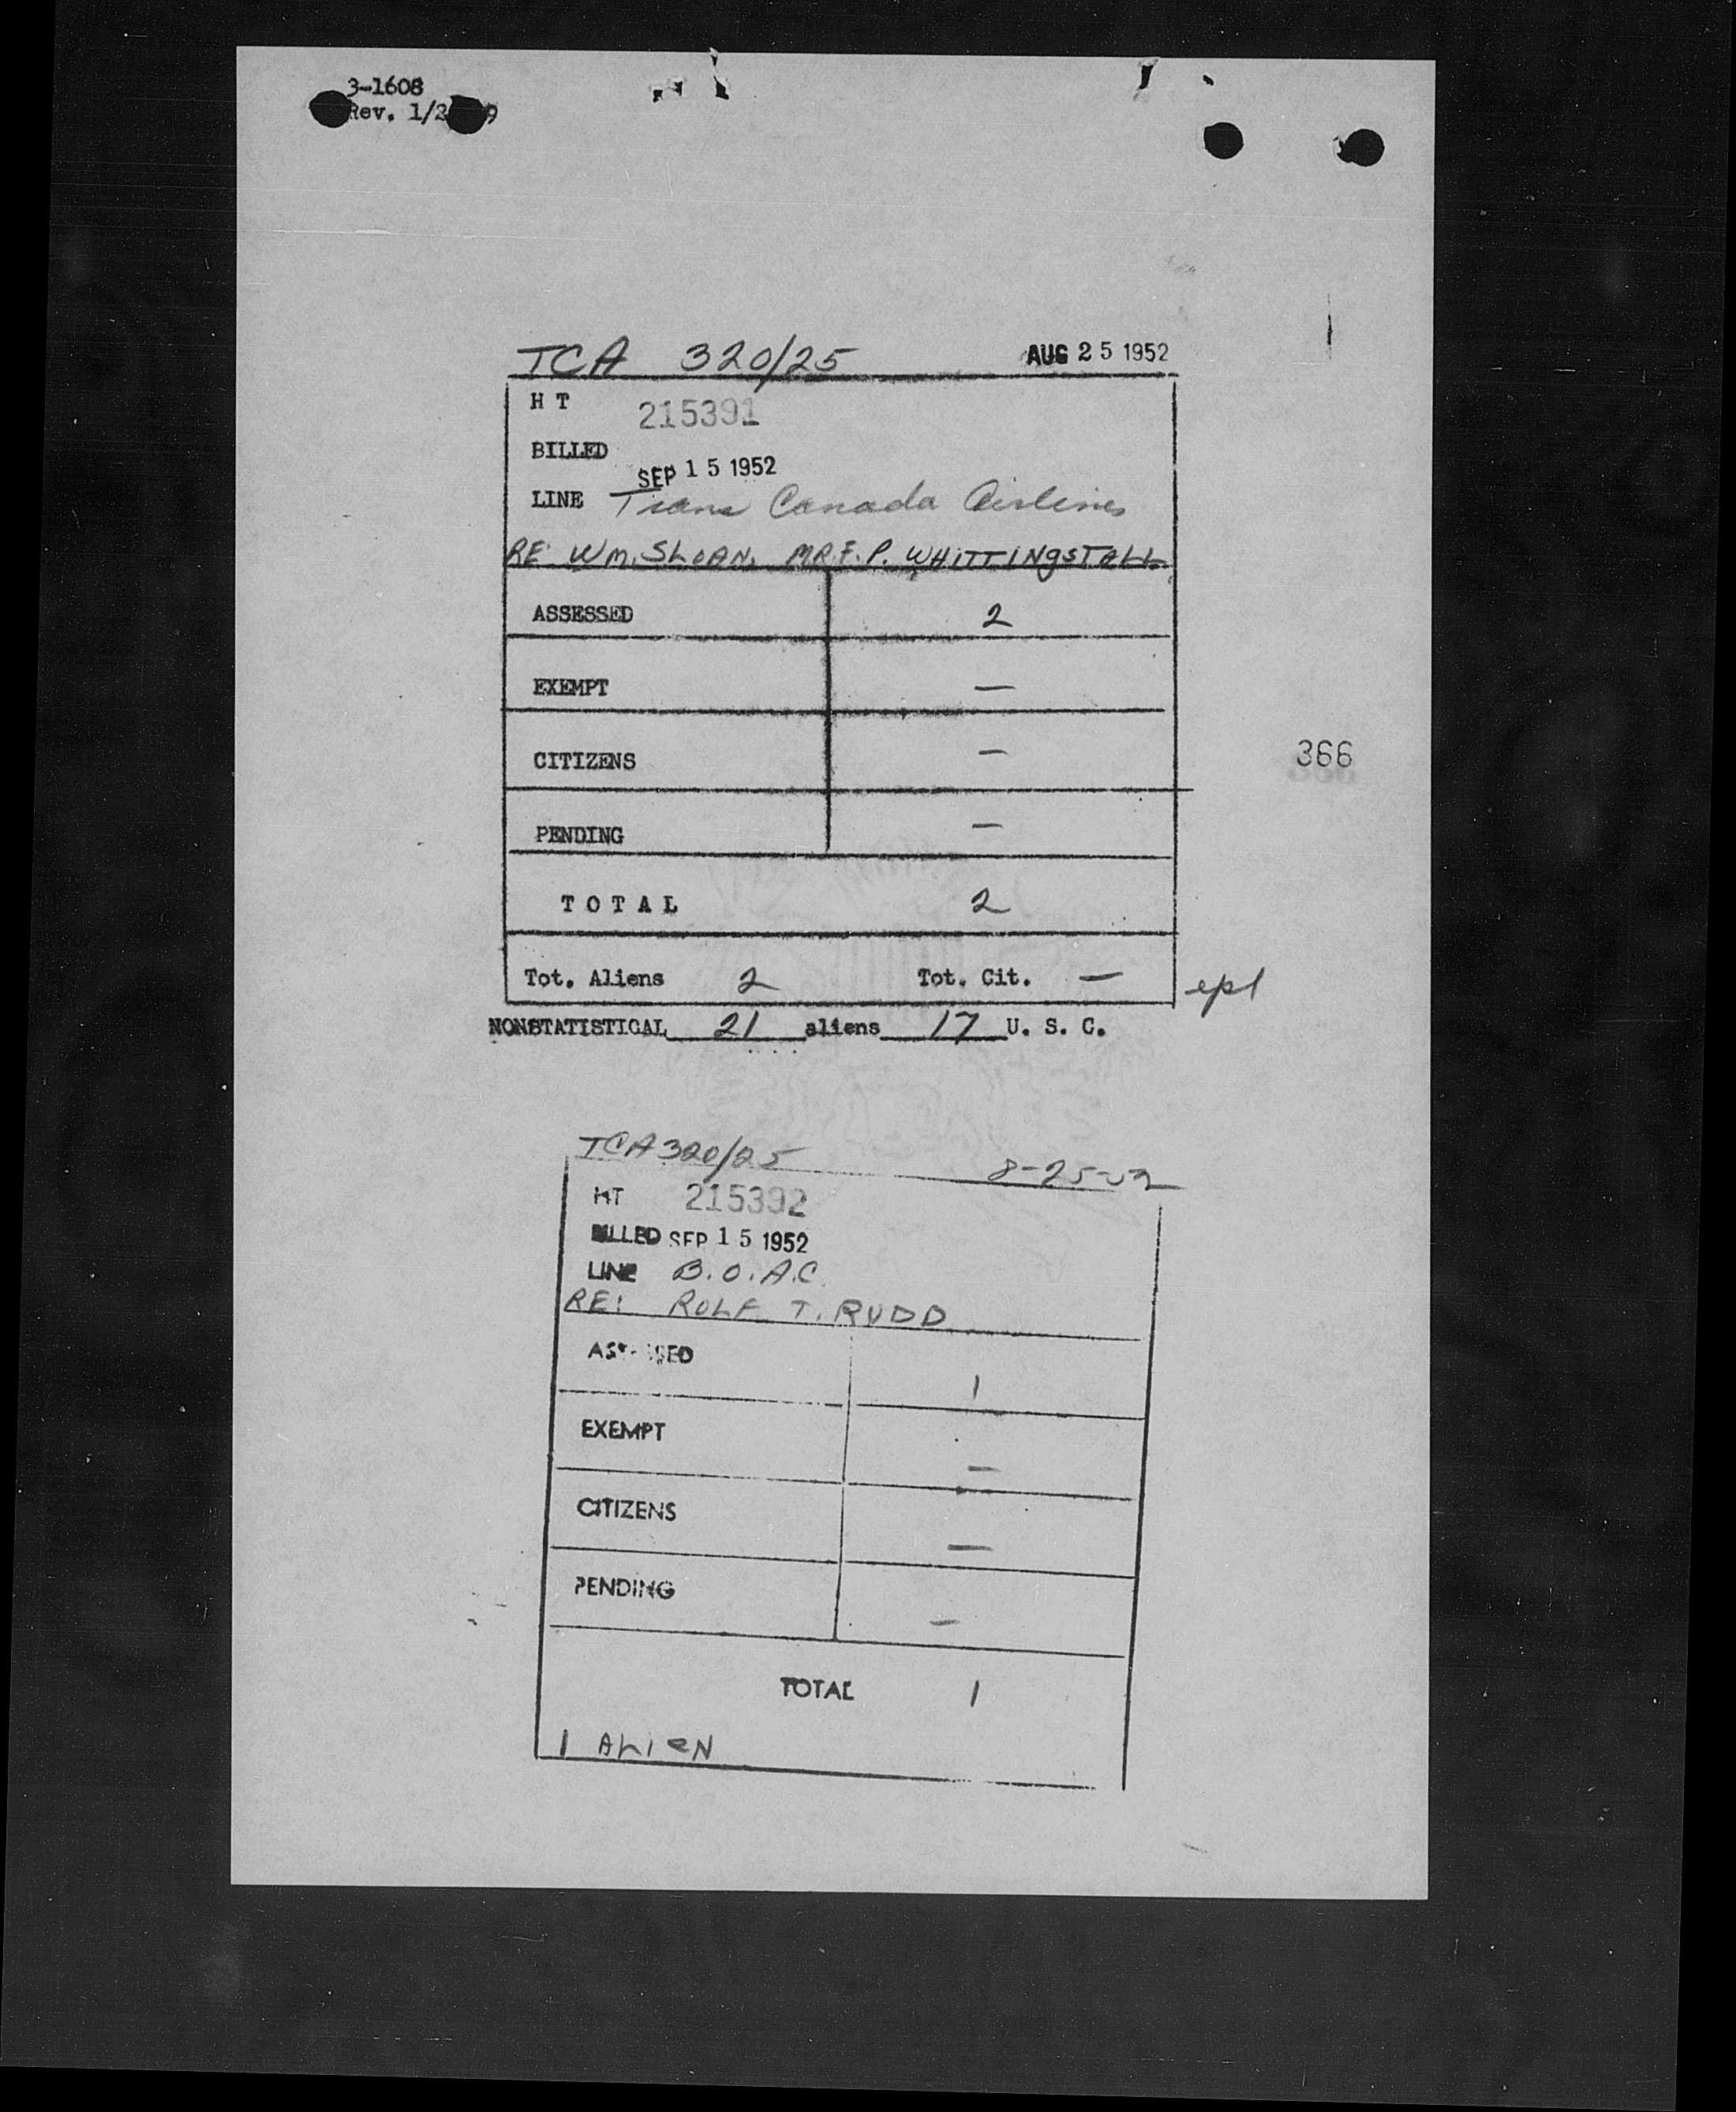 3-1608
Rev. 1/2 9
TCA 320/25 AUG 25 1952
HT 215391
BILLED SEP 15 1952
LINE Trans Canada Airlines
RE WM. SLOAN, MR. F. P. WHITTINGSTALL
ASSESSED 2
EXEMPT —
CITIZENS —
366
PENDING —
TOTAL 2
Tot. Aliens 2 Tot. Cit. —
NONSTATISTICAL 21 aliens 17 U. S. C.
TCA 320/25 8-25-52
HT 215392
BILLED SEP 15 1952
LINE B.O.A.C.
RE: ROLF T. RUDD
ASSESSED 1
EXEMPT —
CITIZENS —
PENDING —
TOTAL 1
1 ALIEN